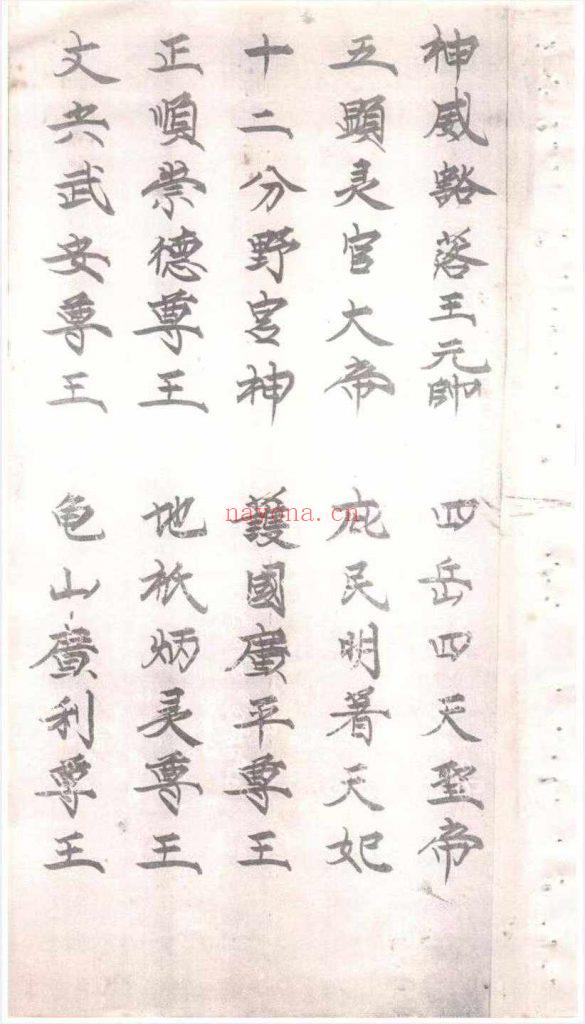 神威豁落王元帥 四岳四天聖帝
五顯灵官大帝 庇民明著天妃
十二分野宮神 護國廣平尊王
正順崇德尊王 地祇炳灵尊王
文兴武安尊王 亀山廣利尊王
nayona.cn